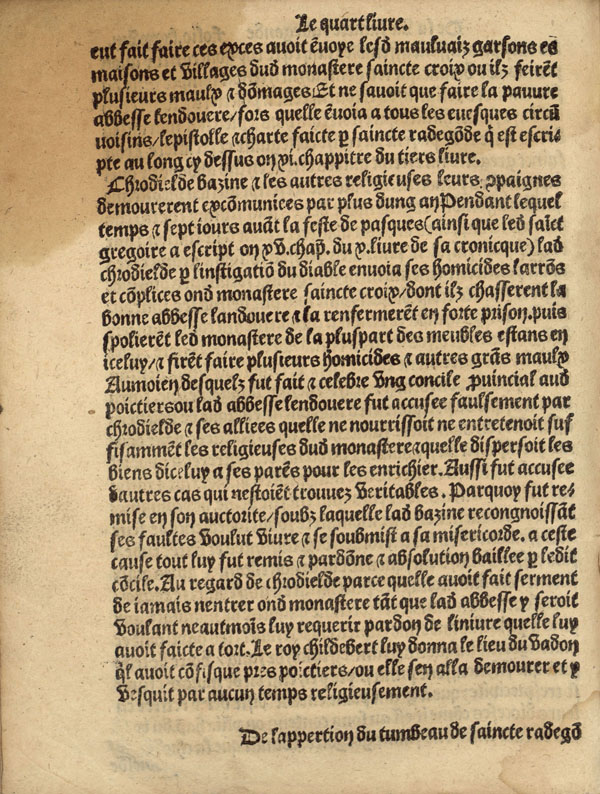 Le quart liure.
eut fait faire ces exces auoit ẽuoye lesd mauluaiz garsons es
maisons et villages dud monastere saincte croix ou ilz feirẽt
plusieurs maulx ⁊ dõmages Et ne sauoit que faire la pauure
abbesse lendouere/fors quelle ẽuoia a tous les euesques circũ
uoisins/lepistolle ⁊ charte faicte ꝑ saincte radegõde q̃ est escri-
pte au long cy dessus on xi. chappitre du tiers liure.
Chrodielde bazine ⁊ les autres religieuses leurs ꝯpaignes
demourerent excõmunices par plus dung an Pendant lequel
temps ⁊ sept iours auãt la feste de pasques (ainsi que led saĩct
gregoire a escript on xv. chap̃. du x. liure de sa cronicque) lad
chrodielde ꝑ linstigatiõ du diable enuoia ses homicides larrõs
et cõplices ond monastere saincte croix/dont ilz chasserent la
bonne abbesse landouere ⁊ la renfermerẽt en forte prison. puis
spolierẽt led monastere de la pluspart des meubles estans en
iceluy/⁊ firẽt faire plusieurs homicides ⁊ autres grãs maulx
Au moien desquelz fut fait ⁊ celebre vng concile ꝓuincial aud
poictiers ou lad abbesse lendouere fut accusee faulsement par
chrodielde ⁊ ses alliees quelle ne nourrissoit ne entretenoit suf
fisammẽt les religieuses dud monastere ⁊ quelle dispersoit les
biens diceluy a ses parẽs pour les enrichier. Aussi fut accusee
dautres cas qui nestoiẽt trouuez veritables. Parquoy fut re-
mise en son auctorite/soubz laquelle lad bazine recongnoissãt
ses faultes voulut viure ⁊ se soubmist a sa misericorde. a ceste
cause tout luy fut remis ⁊ pardõne ⁊ absolution baillee ꝑ ledit
cõcile. Au regard de chrodielde parce quelle auoit fait serment
de iamais nentrer ond monastere tãt que lad abbesse y seroit
voulant neautmoĩs luy requerir pardon de liniure quelle luy
auoit faicte a tort. Le roy childebert luy donna le lieu du vadon
q̃l auoit cõfisque pres poictiers/ou elle sen alla demourer et y
vesquit par aucun temps religieusement.
De lappertion du tumbeau de saincte radegõ